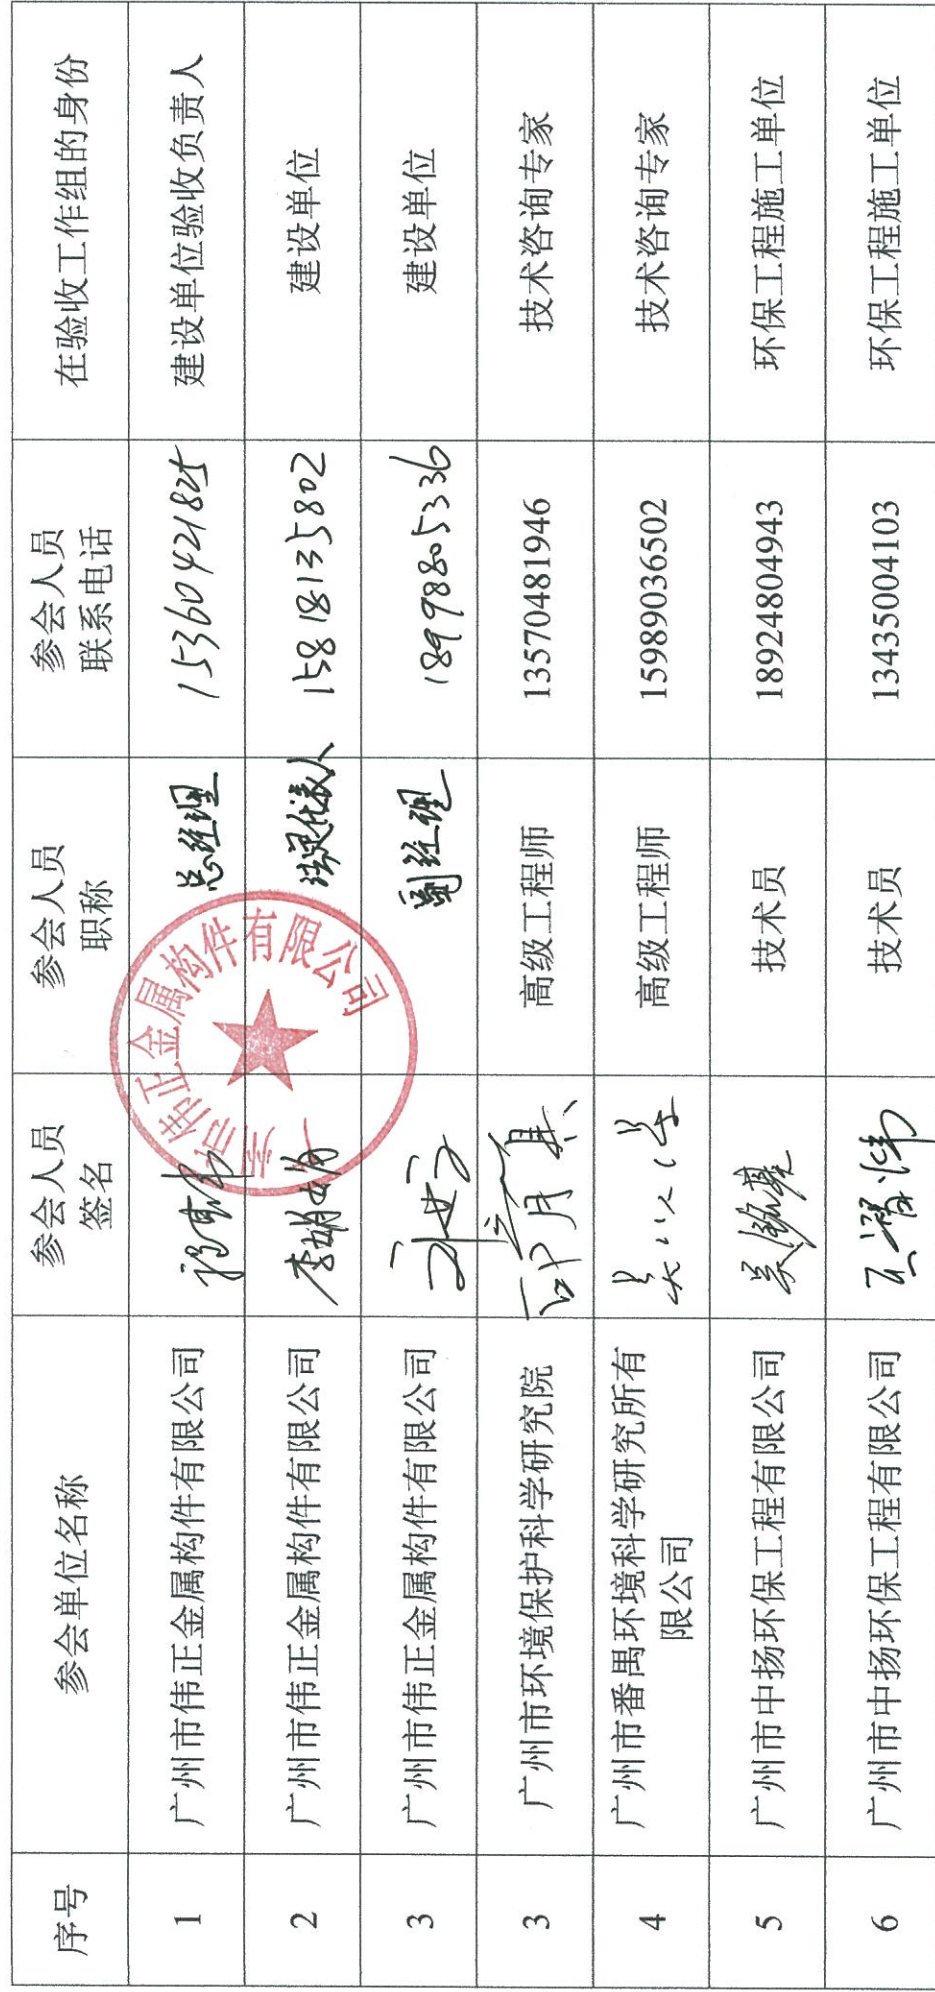 序号 参会单位名称 参会人员签名 参会人员职称 参会人员联系电话 在验收工作组的身份
1 广州市伟正金属构件有限公司 总经理 15360421825 建设单位验收负责人
2 广州市伟正金属构件有限公司 李娟娟 法定代表人 15818135802 建设单位
3 广州市伟正金属构件有限公司 副经理 18998805336 建设单位
3 广州市环境保护科学研究院 高级工程师 13570481946 技术咨询专家
4 广州市番禺环境科学研究所有限公司 高级工程师 15989036502 技术咨询专家
5 广州市中扬环保工程有限公司 技术员 18924804943 环保工程施工单位
6 广州市中扬环保工程有限公司 技术员 13435004103 环保工程施工单位
广州市伟正金属构件有限公司